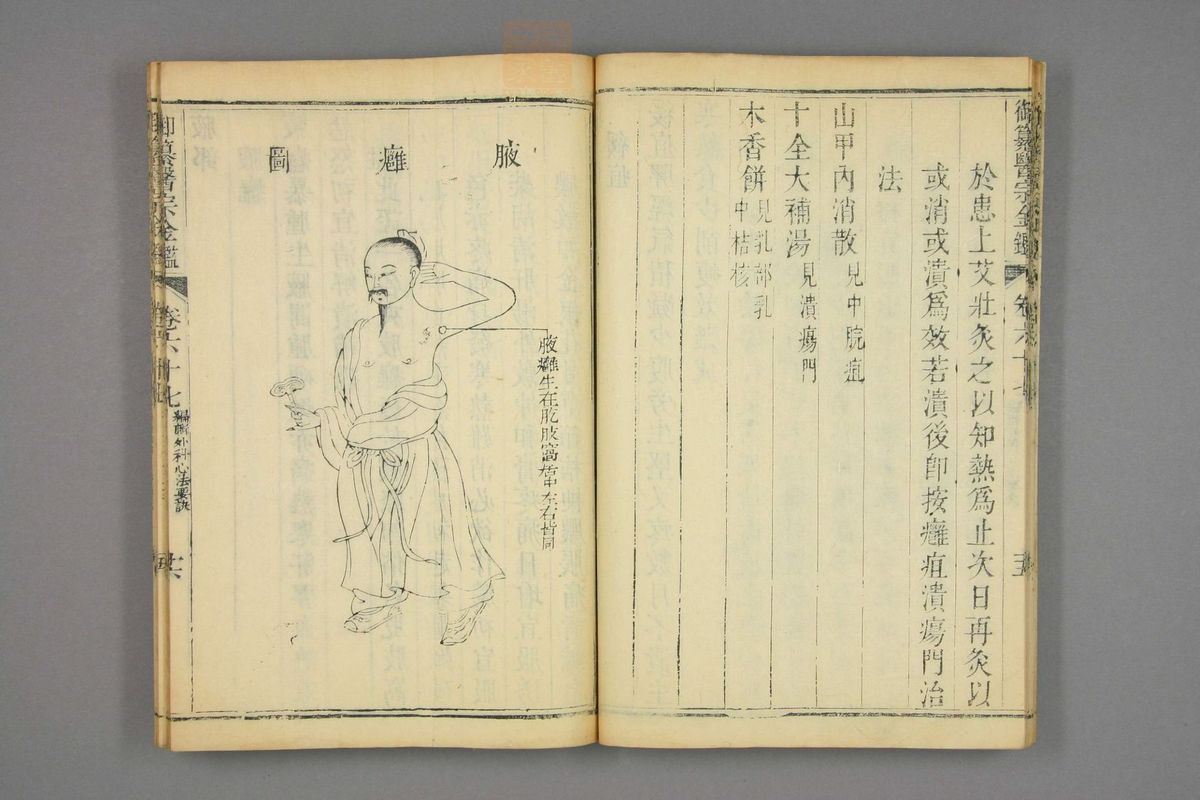 御纂醫宗金鑑 卷六十七
於患上艾壯灸之以知熱爲止次日再灸以
或消或潰爲效若潰後卽按癰疽潰瘍門治
法
山甲內消散 見中脘疽
十全大補湯 見潰瘍門
木香餅 見乳部乳
中桔核
腋癰圖
腋癰生在肐肢窩當中左右皆同
御纂醫宗金鑑 卷六十七 編輯外科心法要訣